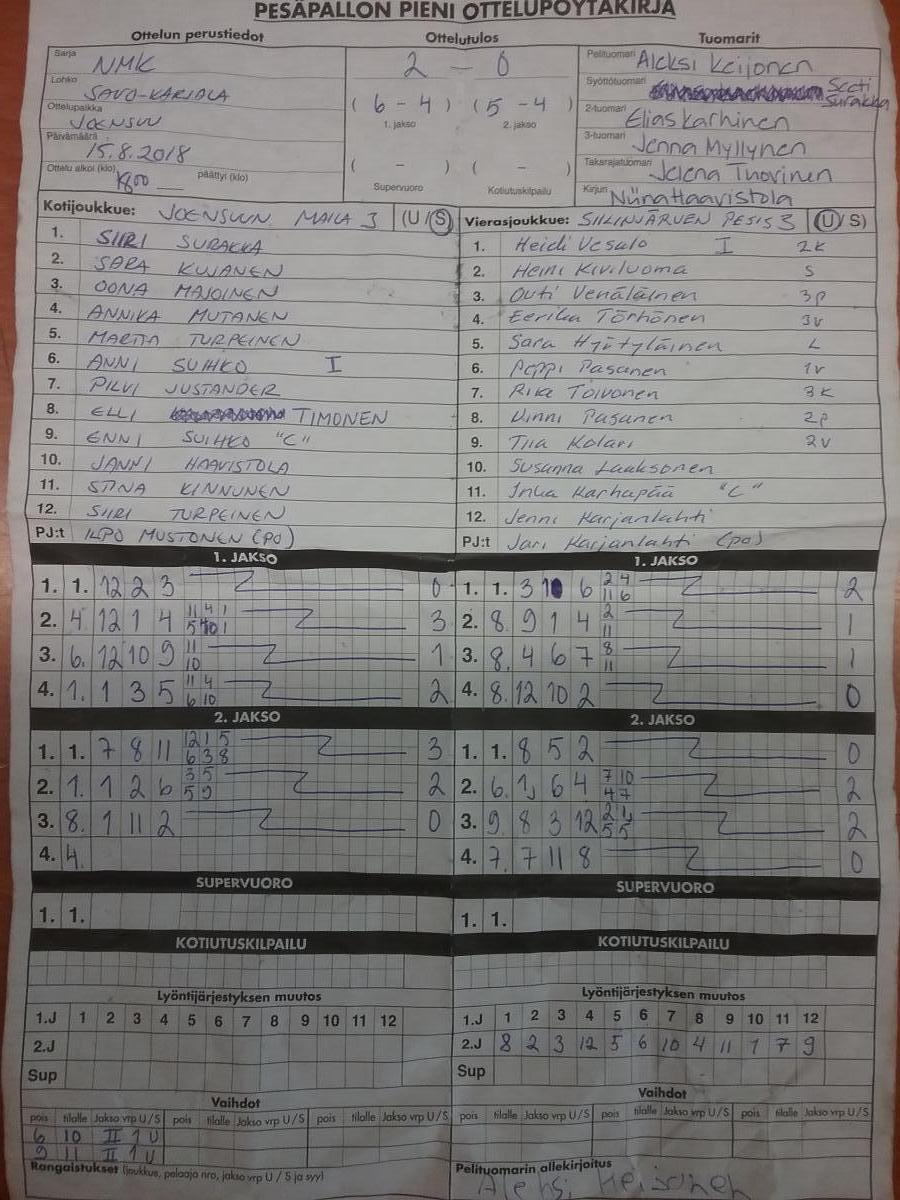 PESÄPALLON PIENI OTTELUPÖYTÄKIRJA
Ottelun perustiedot Ottelutulos Tuomarit
Sarja NMK
Lohko SAVO-KARJALA
Ottelupaikka JOENSUU
Päivämäärä 15.8.2018
Ottelu alkoi (klo) 1800 päättyi (klo)
2 - 0
( 6 - 4 ) ( 5 - 4 )
1. jakso 2. jakso
( - ) ( - )
Supervuoro Kotiutuskilpailu
Pelituomari Aleksi Keijonen
Syöttötuomari Seeti Surakka
2-tuomari Elias Karhinen
3-tuomari Jenna Myllynen
Takarajatuomari Jelena Tuovinen
Kirjuri Niina Haavistola
Kotijoukkue: JOENSUUN MAILA 3 (U/S)
1. SIIRI SURAKKA
2. SARA KUJANEN
3. OONA MAJOINEN
4. ANNIKA MUTANEN
5. MARTTA TURPEINEN
6. ANNI SUIHKO I
7. PILVI JUSTANDER
8. ELLI TIMONEN
9. ENNI SUIHKO "C"
10. JANNI HAAVISTOLA
11. STINA KINNUNEN
12. SIIRI TURPEINEN
PJ:t ILPO MUSTONEN (PO)
Vierasjoukkue: SIILINJÄRVEN PESIS 3 (U/S)
1. Heidi Vesalo I 2K
2. Heini Kiviluoma S
3. Outi Venäläinen 3p
4. Eerika Törhönen 3v
5. Sara Hyytyläinen L
6. Peppi Pasanen 1v
7. Rika Toivonen 3K
8. Vinni Pasanen 2p
9. Tiia Kolari 2v
10. Susanna Laaksonen
11. Inka Karhapää "C"
12. Jenni Karjanlahti
PJ:t Jari Karjanlahti (po)
1. JAKSO
1. 1. 12 2 3 0
2. 4. 12 1 4 11 4 1 3
3. 6. 12 10 9 11 10 1
4. 1. 1 3 5 11 4 6 10 2
2. JAKSO
1. 1. 7 8 11 12 1 5 6 3 8 3
2. 1. 1 2 6 3 5 5 9 2
3. 8. 1 11 2 0
4. 4.
SUPERVUORO
1. 1.
KOTIUTUSKILPAILU
1. JAKSO
1. 1. 3 6 2 4 11 6 2
2. 8. 9 1 4 2 11 1
3. 8. 4 6 7 8 11 1
4. 8. 12 10 2 0
2. JAKSO
1. 1. 8 5 2 0
2. 6. 1, 6 4 7 10 4 7 2
3. 9. 8 3 12 2 1 5 5 2
4. 7. 7 11 8 0
SUPERVUORO
1. 1.
KOTIUTUSKILPAILU
Lyöntijärjestyksen muutos
1.J 1 2 3 4 5 6 7 8 9 10 11 12
2.J
Sup
Lyöntijärjestyksen muutos
1.J 1 2 3 4 5 6 7 8 9 10 11 12
2.J 8 2 3 12 5 6 10 4 11 1 7 9
Sup
Vaihdot
pois tilalle Jakso vrp U/S pois tilalle Jakso vrp U/S pois tilalle Jakso vrp U/S
6 10 II 1 U
9 11 II 1 U
Rangaistukset (joukkue, pelaaja nro, jakso vrp U / S ja syy)
Vaihdot
pois tilalle Jakso vrp U/S pois tilalle Jakso vrp U/S pois tilalle Jakso vrp U/S
Pelituomarin allekirjoitus
Aleksi Keijonen